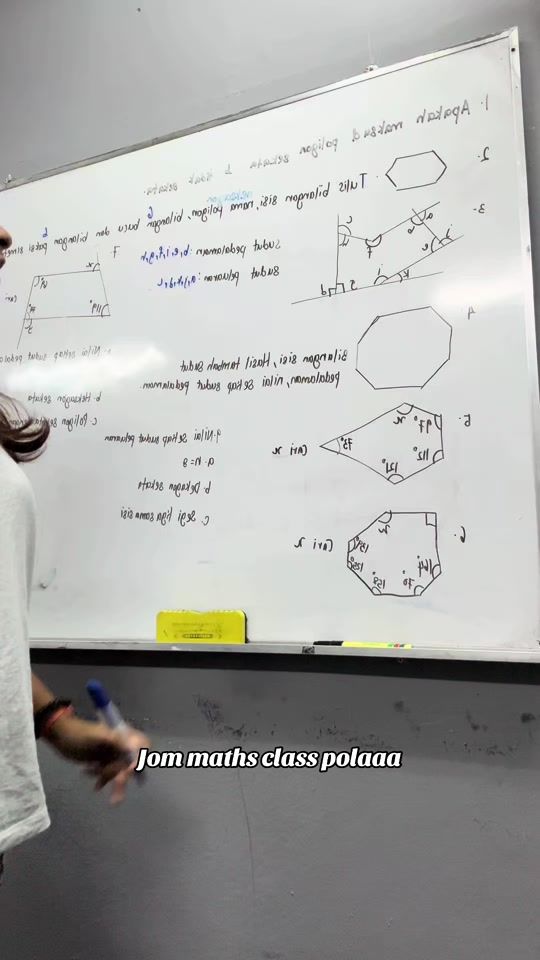 1. Apakah maksud poligon sekata & tidak sekata.
2.
Tulis bilangan sisi, nama poligon, bilangan bucu dan bilangan paksi
6
6
3.
a
b
c
d
e
f
i
j
k
Sudut pedalaman : b, e, i, f, g, h
Sudut peluaran : a, j, k, d, c
4.
Bilangan sisi, Hasil tambah sudut
pedalaman, nilai setiap sudut pedalaman.
5.
x
97°
112°
121°
73°
Cari x
6.
x
159°
70°
Cari x
7.
x
119°
Cari
a. Nilai setiap sudut
b. Heksagon sekata
c. Poligon
9. Nilai setiap sudut peluaran
a. n = 8
b. Dekagon sekata
c. Segi tiga sama sisi
Jom maths class polaaa